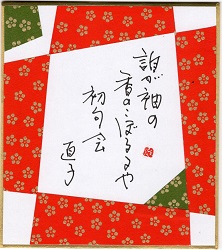 誰が袖の
香のこぼるるや
初句会
直子